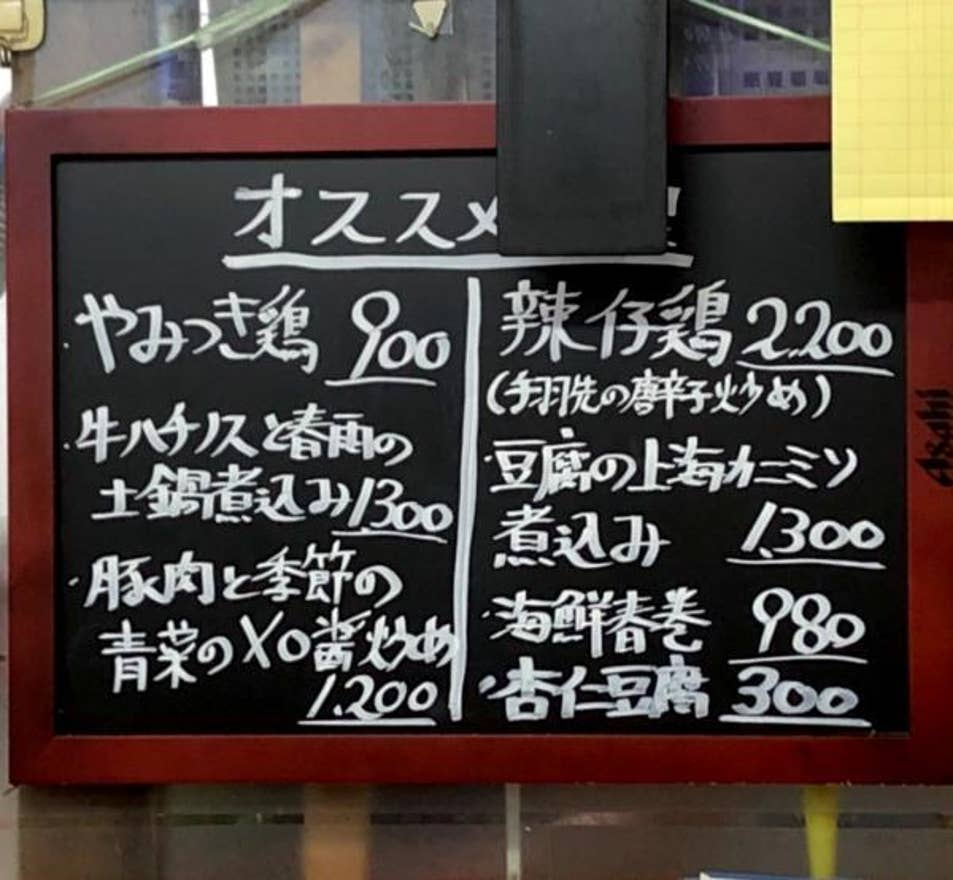 オススメ
・やみつき鶏 900
・牛ハチノスと春雨の
土鍋煮込み 1300
・豚肉と季節の
青菜のXO醤炒め
1.200
辣仔鶏 2.200
(手羽先の唐辛子炒め)
・豆腐の上海カニミソ
煮込み 1.300
・海鮮春巻 980
・杏仁豆腐 300
Asahi